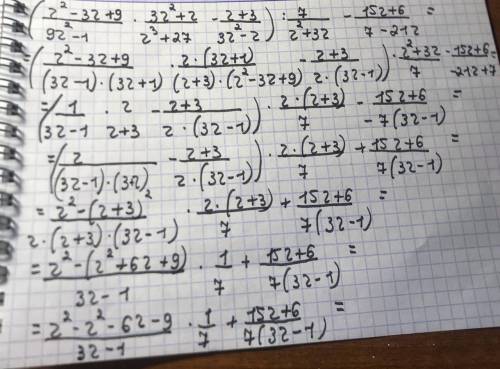 ((z²-3z+9)/(9z²-1) · (3z²+z)/(z³+27) - (z+3)/(3z²-z)) : 7/(z²+3z) - (15z+6)/(7-21z) =
=((z²-3z+9)/((3z-1)·(3z+1)) · (z·(3z+1))/((z+3)·(z²-3z+9)) - (z+3)/(z·(3z-1))) · (z²+3z)/7 - (15z+6)/(-21z+7) =
=(1/(3z-1) · z/(z+3) - (z+3)/(z·(3z-1))) · (z·(z+3))/7 - (15z+6)/(-7(3z-1)) =
=(z/((3z-1)·(3z)) - (z+3)/(z·(3z-1))) · (z·(z+3))/7 + (15z+6)/(7(3z-1)) =
=(z²-(z+3)²)/(z·(z+3)·(3z-1)) · (z·(z+3))/7 + (15z+6)/(7(3z-1)) =
=(z²-(z²+6z+9))/(3z-1) · 1/7 + (15z+6)/(7(3z-1)) =
=(z²-z²-6z-9)/(3z-1) · 1/7 + (15z+6)/(7(3z-1)) =